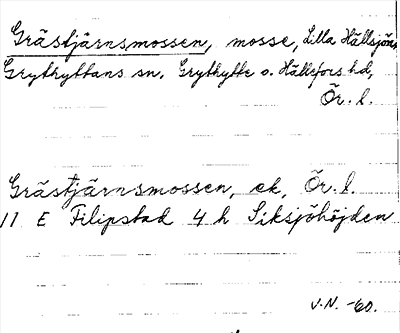 Grästjärnsmossen, mosse, Lilla Hällsjön,
Grythyttans sn. Grythytte o. Hällefors hd,
Ör. l.
Grästjärnsmossen, ek, Ör. l.
11 E Filipstad 4 h Siksjöhöjden
V.N. -60.